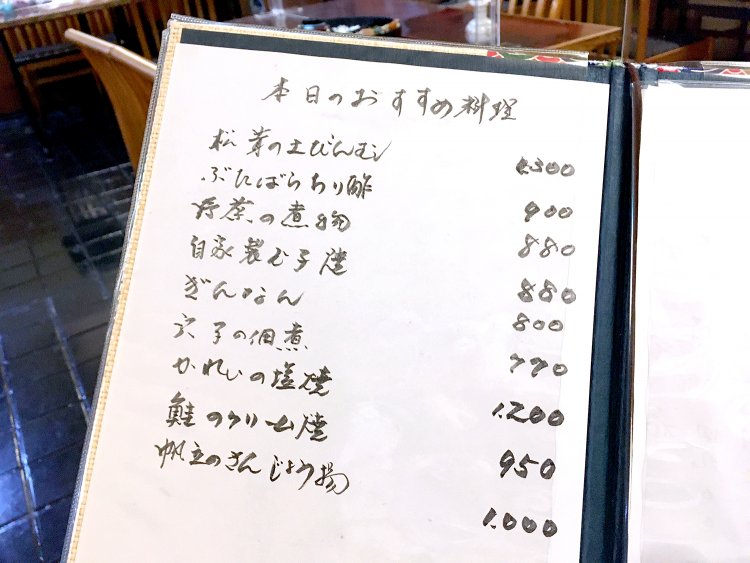 本日のおすすめ料理
松茸の土びんむし 1.300
ぶたばらおろし酢 900
野菜の煮物 880
自家製む子焼 880
ぎんなん 800
穴子の佃煮 770
かれいの塩焼 1.200
鮭のクリーム焼 950
帆立のさんじょう揚 1.000